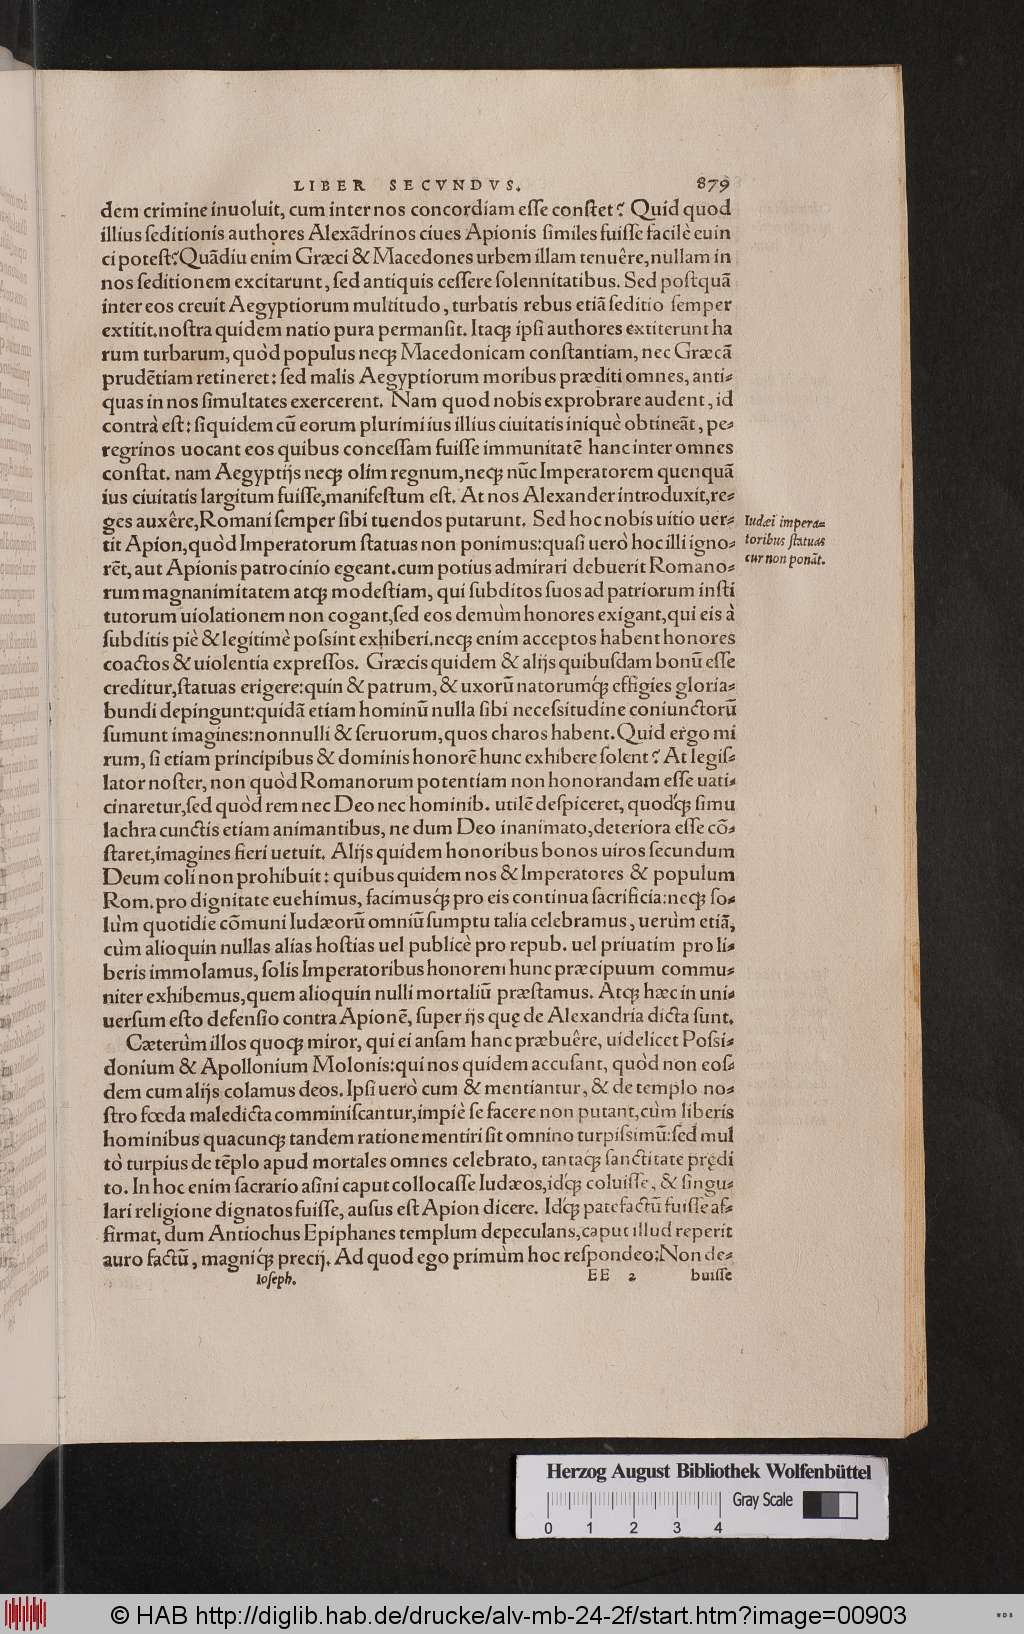 LIBER SECVNDVS. 879
dem crimine inuoluit, cum inter nos concordiam eſſe conſtet? Quid quod
illius ſeditionis authores Alexãdrinos ciues Apionis ſimiles fuiſſe facilè euin
ci poteſt? Quãdiu enim Græci & Macedones urbem illam tenuêre, nullam in
nos ſeditionem excitarunt, ſed antiquis ceſſere ſolennitatibus. Sed poſtquã
inter eos creuit Aegyptiorum multitudo, turbatis rebus etiã ſeditio ſemper
extitit. noſtra quidem natio pura permanſit. Itaqꝫ ipſi authores extiterunt ha
rum turbarum, quòd populus neqꝫ Macedonicam conſtantiam, nec Græcã
prudẽtiam retineret: ſed malis Aegyptiorum moribus præditi omnes, anti-
quas in nos ſimultates exercerent. Nam quod nobis exprobrare audent, id
contrà eſt: ſiquidem cũ eorum plurimi ius illius ciuitatis iniquè obtineãt, pe-
regrinos uocant eos quibus conceſſam fuiſſe immunitatẽ hanc inter omnes
conſtat. nam Aegyptijs neqꝫ olim regnum, neqꝫ nũc Imperatorem quenquã
ius ciuitatis largitum fuiſſe, manifeſtum eſt. At nos Alexander introduxit, re-
ges auxêre, Romani ſemper ſibi tuendos putarunt. Sed hoc nobis uitio uer-
tit Apion, quòd Imperatorum ſtatuas non ponimus: quaſi uerò hoc illi igno-
rẽt, aut Apionis patrocinio egeant. cum potius admirari debuerit Romano-
rum magnanimitatem atqꝫ modeſtiam, qui ſubditos ſuos ad patriorum inſti
tutorum uiolationem non cogant, ſed eos demùm honores exigant, qui eis à
ſubditis piè & legitimè poſsint exhiberi. neqꝫ enim acceptos habent honores
coactos & uiolentia expreſſos. Græcis quidem & alijs quibuſdam bonũ eſſe
creditur, ſtatuas erigere: quin & patrum, & uxorũ natorumqꝫ́ effigies gloria-
bundi depingunt: quidã etiam hominũ nulla ſibi neceſsitudine coniunctorũ
ſumunt imagines: nonnulli & ſeruorum, quos charos habent. Quid ergo mi
rum, ſi etiam principibus & dominis honorẽ hunc exhibere ſolent? At legiſ-
lator noſter, non quòd Romanorum potentiam non honorandam eſſe uati-
cinaretur, ſed quòd rem nec Deo nec hominib. utilẽ deſpiceret, quodqꝫ́ ſimu
lachra cunctis etiam animantibus, ne dum Deo inanimato, deteriora eſſe cõ-
ſtaret, imagines fieri uetuit. Alijs quidem honoribus bonos uiros ſecundum
Deum coli non prohibuit: quibus quidem nos & Imperatores & populum
Rom. pro dignitate euehimus, facimusqꝫ́ pro eis continua ſacrificia: neqꝫ ſo-
lùm quotidie cõmuni Iudæorũ omniũ ſumptu talia celebramus, uerùm etiã,
cùm alioquin nullas alias hoſtias uel publicè pro repub. uel priuatim pro li-
beris immolamus, ſolis Imperatoribus honorem hunc præcipuum commu-
niter exhibemus, quem alioquin nulli mortaliũ præſtamus. Atqꝫ hæc in uni-
uerſum eſto defenſio contra Apionẽ, ſuper ijs quę de Alexandria dicta ſunt.
Cæterùm illos quoqꝫ miror, qui ei anſam hanc præbuêre, uidelicet Poſsi-
donium & Apollonium Molonis: qui nos quidem accuſant, quòd non eoſ-
dem cum alijs colamus deos. Ipſi uerò cum & mentiantur, & de templo no-
ſtro fœda maledicta comminiſcantur, impiè ſe facere non putant, cùm liberis
hominibus quacunqꝫ tandem ratione mentiri ſit omnino turpiſsimũ: ſed mul
tò turpius de tẽplo apud mortales omnes celebrato, tantaqꝫ ſanctitate prędi
to. In hoc enim ſacrario aſini caput collocaſſe Iudæos, idqꝫ́ coluiſſe, & ſingu-
lari religione dignatos fuiſſe, auſus eſt Apion dicere. Idqꝫ́ patefactũ fuiſſe af-
firmat, dum Antiochus Epiphanes templum depeculans, caput illud reperit
auro factũ, magniqꝫ́ precij. Ad quod ego primùm hoc reſpondeo: Non de-
Ioſeph. EE 2 buiſſe
Iudæi impera-
toribus ſtatuas
cur non ponãt.
Herzog August Bibliothek Wolfenbüttel
Gray Scale
0 1 2 3 4
© HAB http://diglib.hab.de/drucke/alv-mb-24-2f/start.htm?image=00903